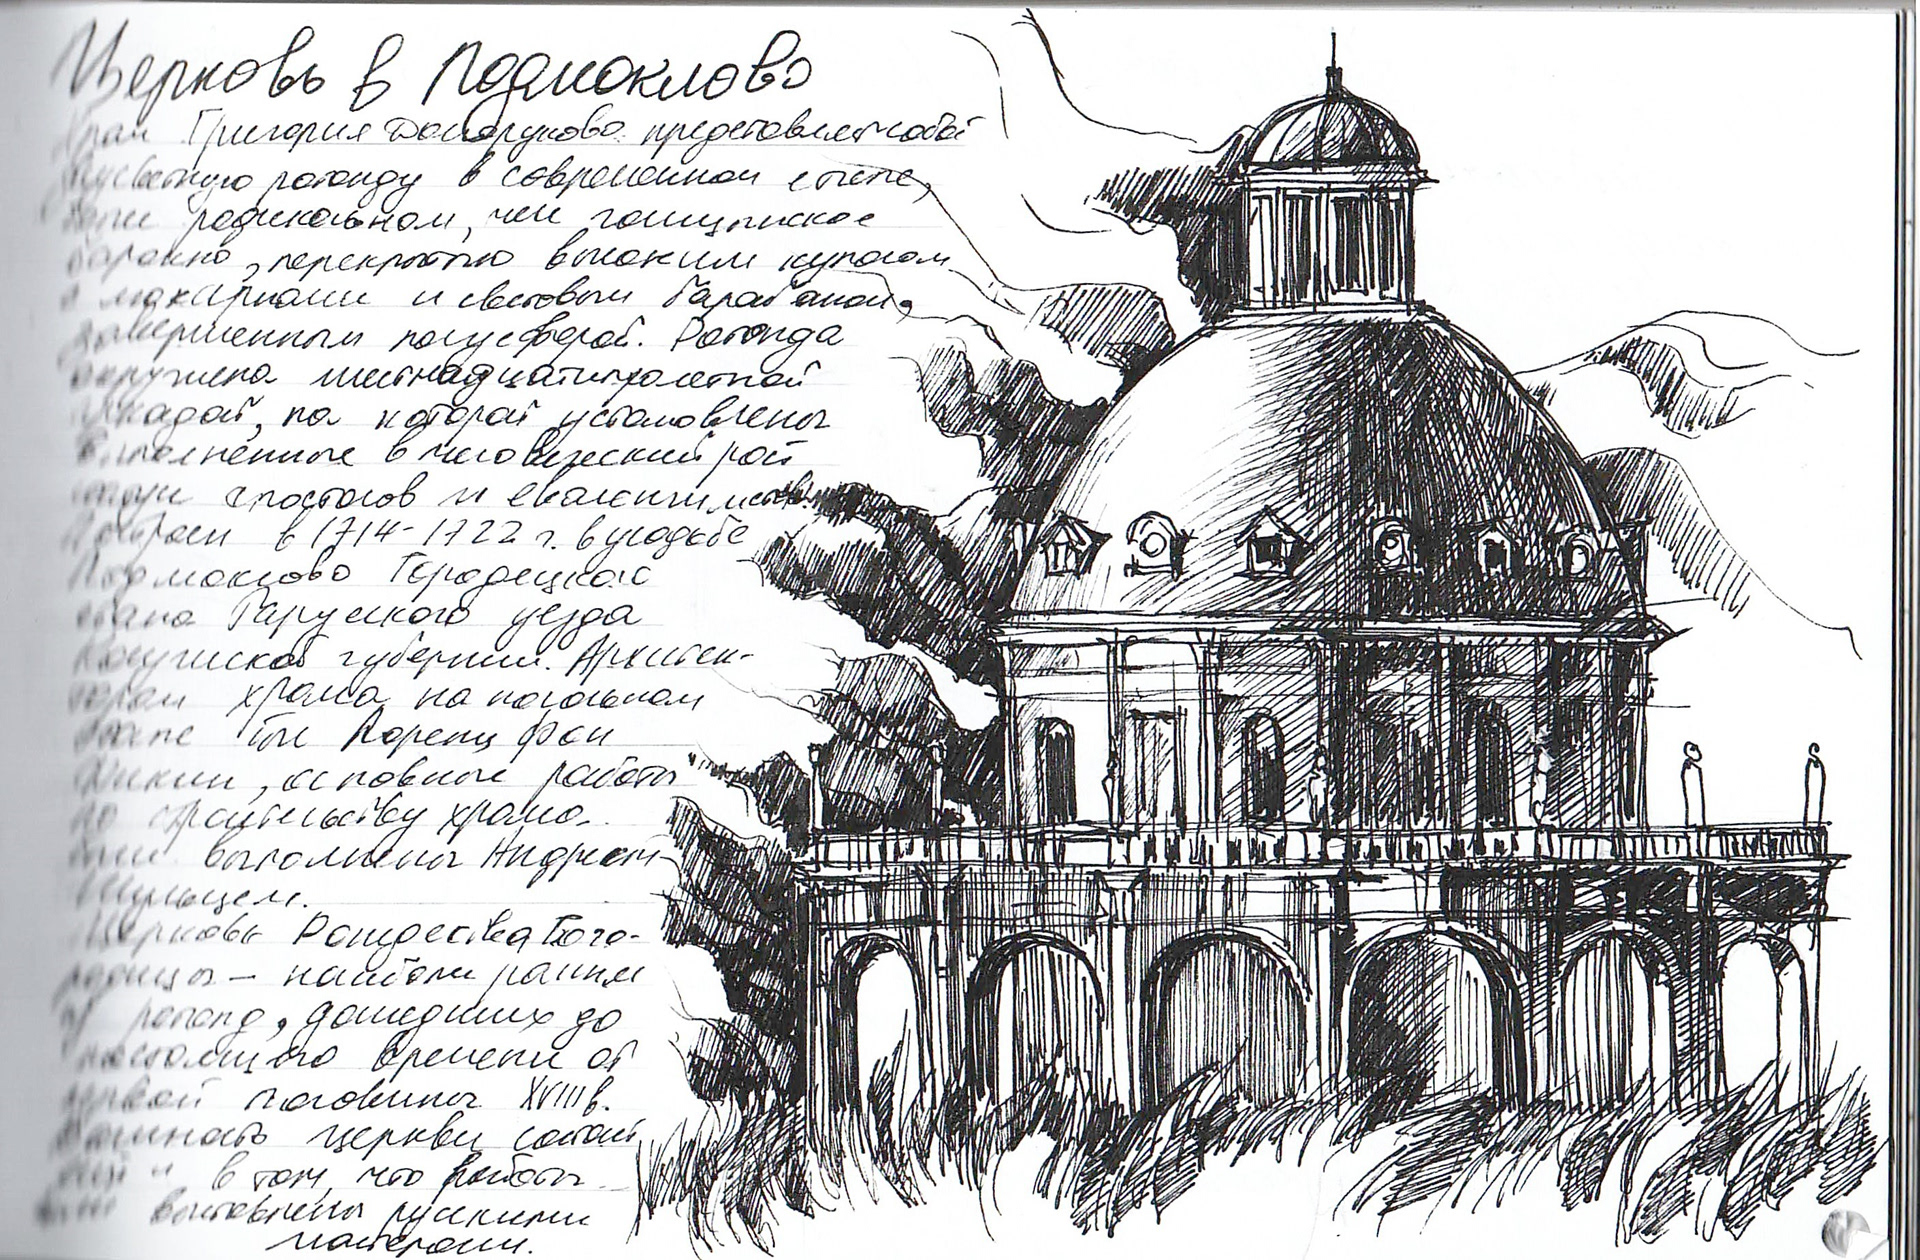 Церковь в Подмоклово
Храм Григория Долорукова представляет собой
ротонду в современном стиле,
более радикальном, чем голицынское
барокко, перекрытую высоким куполом
с люкарнами и световым барабаном,
завершенным полусферой. Ротонда
окружена шестнадцатипролетной
аркадой, на которой установлены
выполненные в человеческий рост
апостолов и евангелистов.
в 1714-1722 г. в усадьбе
Подмоклово Городецкого
стана Тарусского уезда
Калужской губернии. Архитек-
тором храма на начальном
этапе был Лоренц фон
, основные работы
по строительству храма
были выполнены Андреем
Шульцем.
Церковь Рождества Бого-
родицы - наиболее ранняя
из ротонд, дошедших до
настоящего времени от
первой половины XVIII в.
церкви состоит
в том, что работы
были выполнены русскими
мастерами.